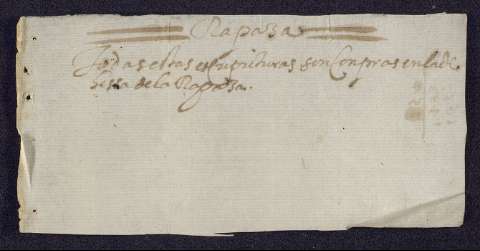 Rapaza
Todas estas escripturas son Conpras en la de
hessa de la Rapaza.